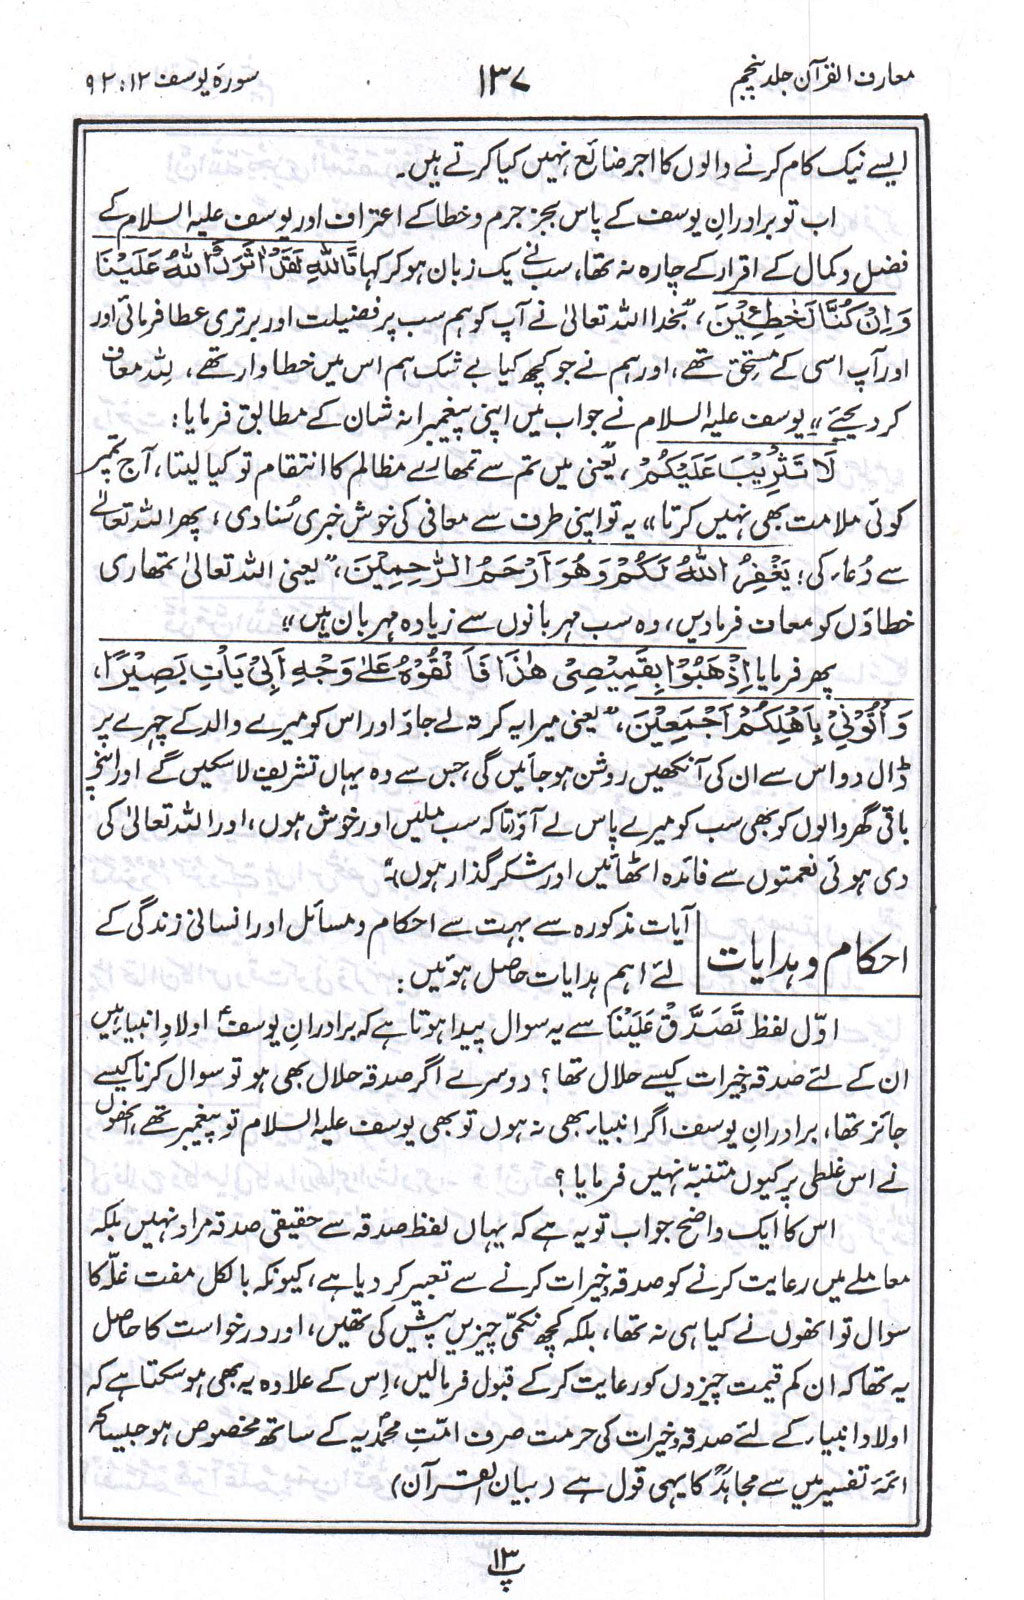 معارف القرآن جلد پنجم
۱۳۷
سورۃ یوسف ۱۲ : ۹۲
ایسے نیک کام کرنے والوں کا اجر ضائع نہیں کیا کرتے ہیں۔
اب تو برادرانِ یوسف کے پاس بجز جرم و خطا کے اعتراف اور یوسف علیہ السلام کے
فضل و کمال کے اقرار کے چارہ نہ تھا، سب نے یک زبان ہو کر کہا تَاللّٰهِ لَقَدْ اٰثَرَكَ اللّٰهُ عَلَيْنَا
وَاِنْ كُنَّا لَخٰطِـِٕيْنَ، "بخدا اللہ تعالیٰ نے آپ کو ہم سب پر فضیلت اور برتری عطا فرمائی اور
اور آپ اسی کے مستحق تھے، اور ہم نے جو کچھ کیا بے شک ہم اس میں خطاوار تھے، للہ معاف
کر دیجئے" یوسف علیہ السلام نے جواب میں اپنی پیغمبرانہ شان کے مطابق فرمایا :
لَا تَثْرِيْبَ عَلَيْكُمْ، "یعنی میں تم سے تمھارے مظالم کا انتقام تو کیا لیتا، آج تم پر
کوئی ملامت بھی نہیں کرتا" یہ تو اپنی طرف سے معافی کی خوش خبری سُنا دی، پھر اللہ تعالیٰ
سے دُعاء کی؛ يَغْفِرُ اللّٰهُ لَكُمْ وَهُوَ اَرْحَمُ الرّٰحِمِيْنَ، "یعنی اللہ تعالیٰ تمھاری
خطاؤں کو معاف فرما دیں، وہ سب مہربانوں سے زیادہ مہربان ہیں"
پھر فرمایا اِذْهَبُوْا بِقَمِيْصِىْ هٰذَا فَاَلْقُوْهُ عَلٰى وَجْهِ اَبِىْ يَاْتِ بَصِيْرًا،
وَاْتُوْنِىْ بِاَهْلِكُمْ اَجْمَعِيْنَ، "یعنی میرا یہ کرتہ لے جاؤ اور اس کو میرے والد کے چہرے پر
ڈال دو اس سے ان کی آنکھیں روشن ہو جائیں گی، جس سے وہ یہاں تشریف لا سکیں گے اور اپنے
باقی گھر والوں کو بھی سب کو میرے پاس لے آؤ (تاکہ سب ملیں اور خوش ہوں، اور اللہ تعالیٰ کی
دی ہوئی نعمتوں سے فائدہ اٹھائیں اور شکر گذار ہوں)"
احکام و ہدایات
آیات مذکورہ سے بہت سے احکام و مسائل اور انسانی زندگی کے
لئے اہم ہدایات حاصل ہوئیں :
اوّل لفظ تَصَدَّقْ عَلَيْنَا سے یہ سوال پیدا ہوتا ہے کہ برادرانِ یوسفؑ اولادِ انبیاء ہیں
ان کے لئے صدقہ و خیرات کیسے حلال تھا؟ دوسرے اگر صدقہ حلال بھی ہو تو سوال کرنا کیسے
جائز تھا، برادرانِ یوسف اگر انبیاء بھی نہ ہوں تو بھی یوسف علیہ السلام تو پیغمبر تھے، انھوں
نے اس غلطی پر کیوں متنبّہ نہیں فرمایا؟
اس کا ایک واضح جواب تو یہ ہے کہ یہاں لفظ صدقہ سے حقیقی صدقہ مراد نہیں بلکہ
معاملے میں رعایت کرنے کو صدقہ و خیرات کرنے سے تعبیر کر دیا ہے، کیونکہ بالکل مفت غلّہ کا
سوال تو انھوں نے کیا ہی نہ تھا، بلکہ کچھ نکمّی چیزیں پیش کی تھیں، اور درخواست کا حاصل
یہ تھا کہ ان کم قیمت چیزوں کو رعایت کر کے قبول فرمالیں، اِس کے علاوہ یہ بھی ہو سکتا ہے کہ
اولاد انبیاء کے لئے صدقہ و خیرات کی حرمت صرف امّتِ محمّدیہ کے ساتھ مخصوص ہو جیسا کہ
ائمہ تفسیر میں سے مجاہدؒ کا یہی قول ہے (بیان القرآن)
پ ۱۳